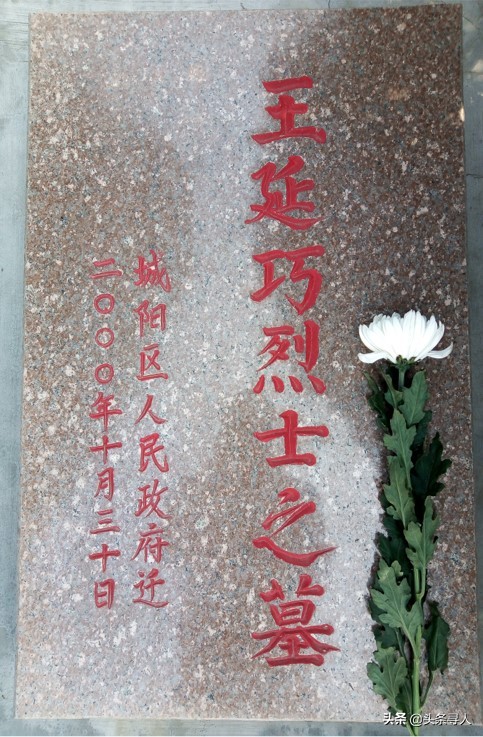 王延巧烈士之墓
城阳区人民政府迁
二〇〇〇年十月三十日
头条@头条寻人